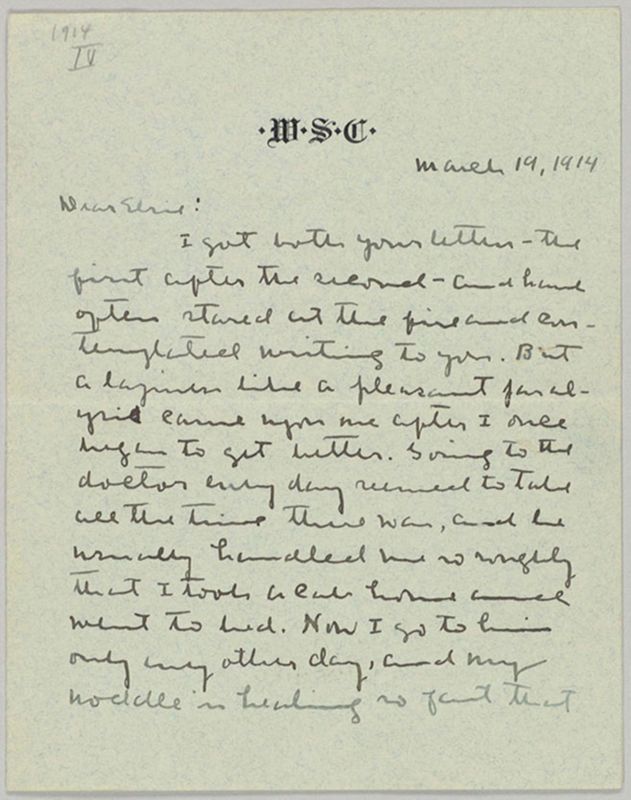 1914
IV
·W·S·C·
March 19, 1914
Dear Elsie:
I got both your letters - the
first after the second - and have
often stared at the fire and con-
templated writing to you. But
a laziness like a pleasant paral-
ysis came upon me after I once
began to get better. Going to the
doctor every day seemed to take
all the time there was, and he
usually handled me so roughly
that I took a cab home and
went to bed. Now I go to him
only every other day, and my
noddle is healing so fast that